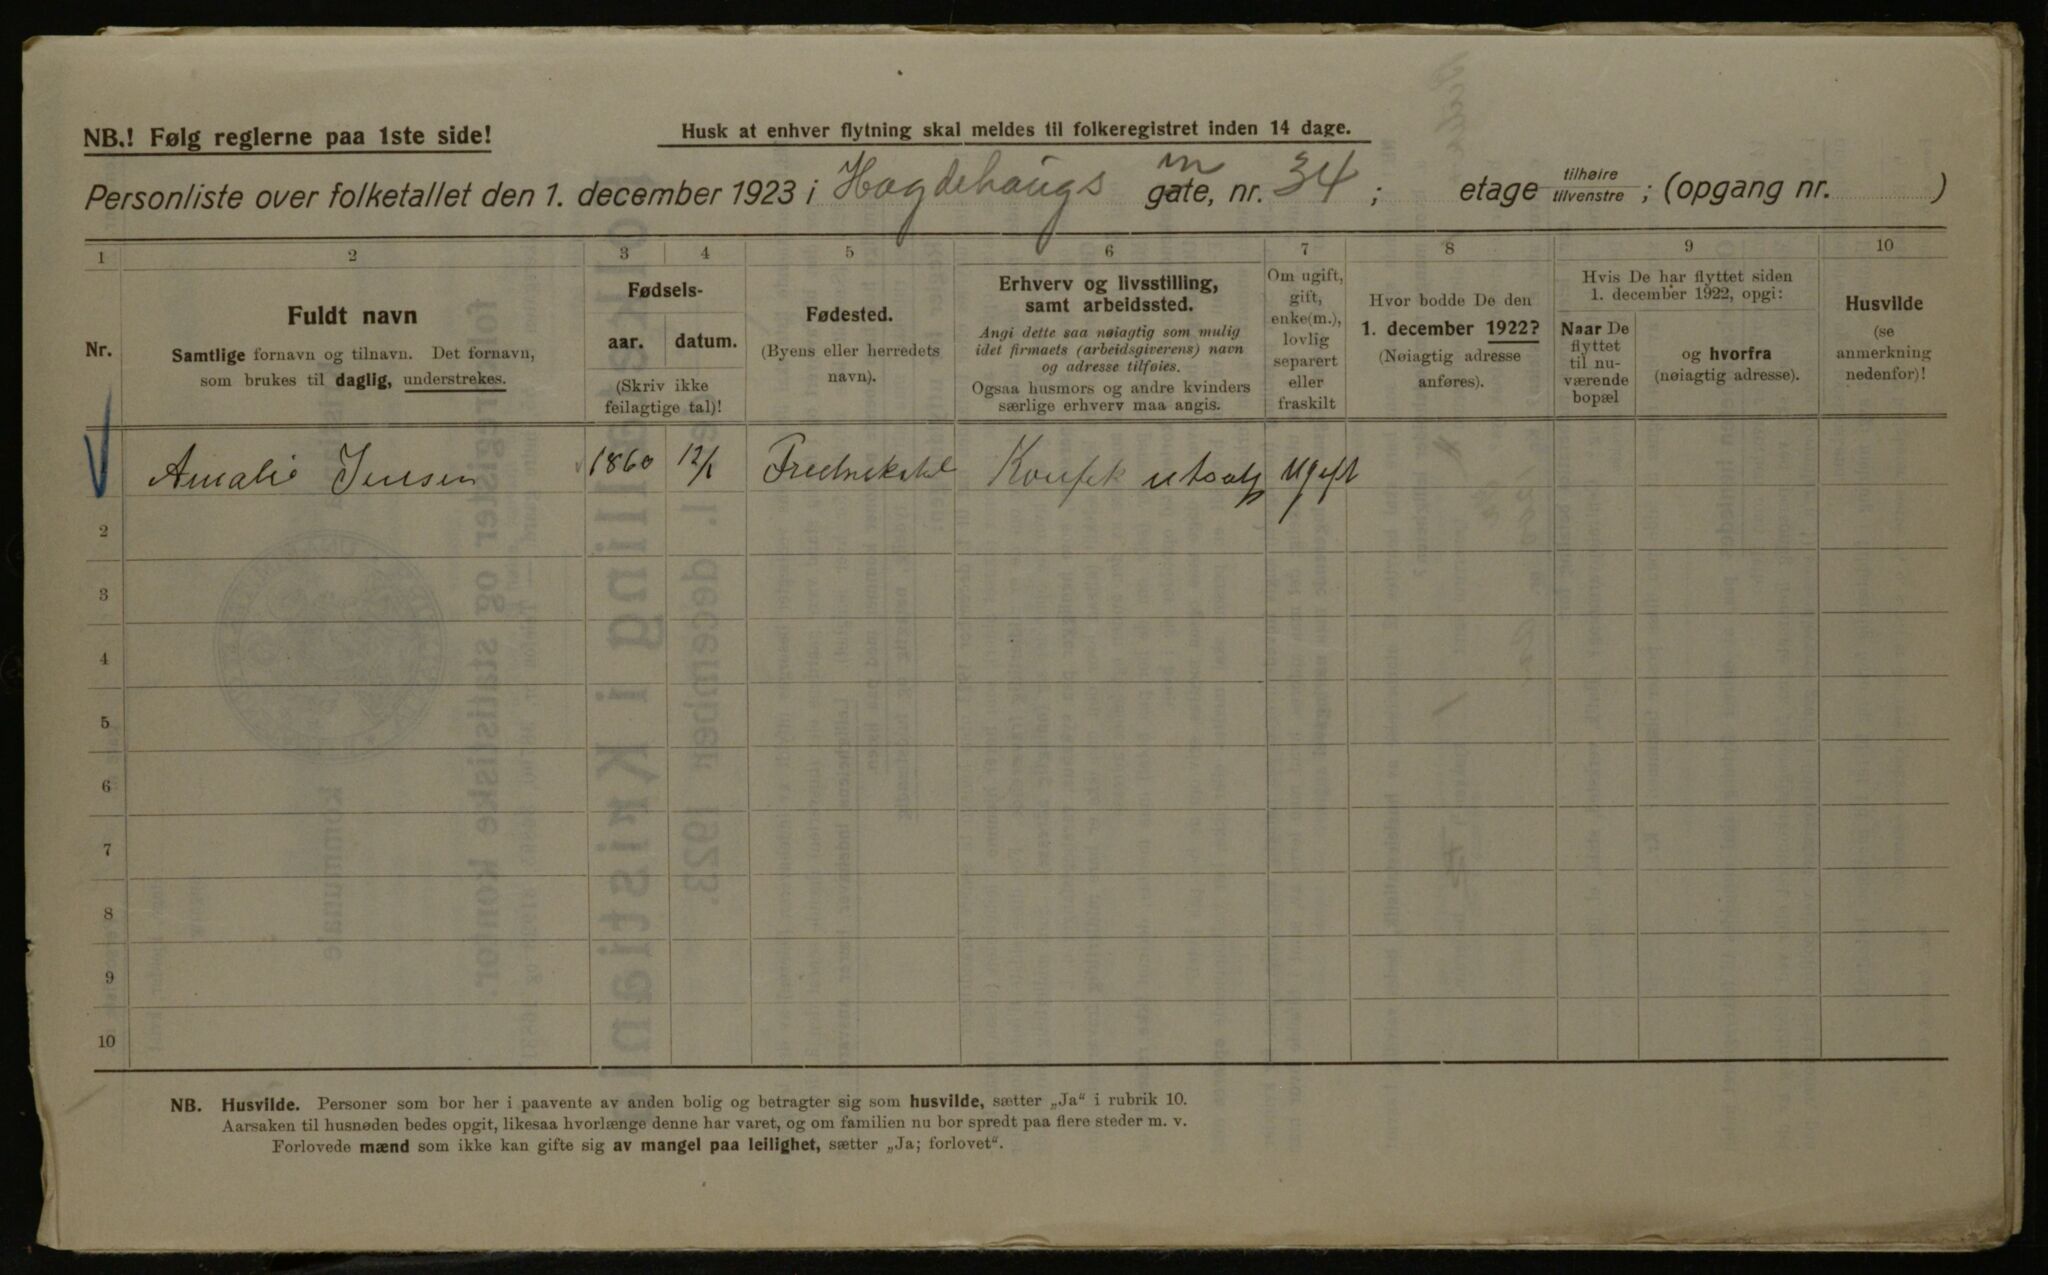 NB.! Følg reglerne paa 1ste side!
Husk at enhver flytning skal meldes til folkeregistret inden 14 dage.
Personliste over folketallet den 1. december 1923 i Hægdehaugs gate, nr. 34; etage tilhøire tilvenstre; (opgang nr. )
1 2 3 4 5 6 7 8 9 10
Nr.
Fuldt navn
Samtlige fornavn og tilnavn. Det fornavn,
som brukes til daglig, understrekes.
Fødsels-
aar. datum.
(Skriv ikke
feilagtige tal)!
Fødested.
(Byens eller herredets
navn).
Erhverv og livsstilling,
samt arbeidssted.
Angi dette saa nøiagtig som mulig
idet firmaets (arbeidsgiverens) navn
og adresse tilføies.
Ogsaa husmors og andre kvinders
særlige erhverv maa angis.
Om ugift,
gift,
enke(m.),
lovlig
separert
eller
fraskilt
Hvor bodde De den
1. december 1922?
(Nøiagtig adresse
anføres).
Hvis De har flyttet siden
1. december 1922, opgi:
Naar De
flyttet
til nu-
værende
bopæl
og hvorfra
(nøiagtig adresse).
Husvilde
(se
anmerkning
nedenfor)!
Amalie Jensen 1860 12/1 Fredrikshal Konfek utsalg Ugift
2
3
4
5
6
7
8
9
10
NB. Husvilde. Personer som bor her i paavente av anden bolig og betragter sig som husvilde, sætter „Ja“ i rubrik 10.
Aarsaken til husnøden bedes opgit, likesaa hvorlænge denne har varet, og om familien nu bor spredt paa flere steder m. v.
Forlovede mænd som ikke kan gifte sig av mangel paa leilighet, sætter „Ja; forlovet“.